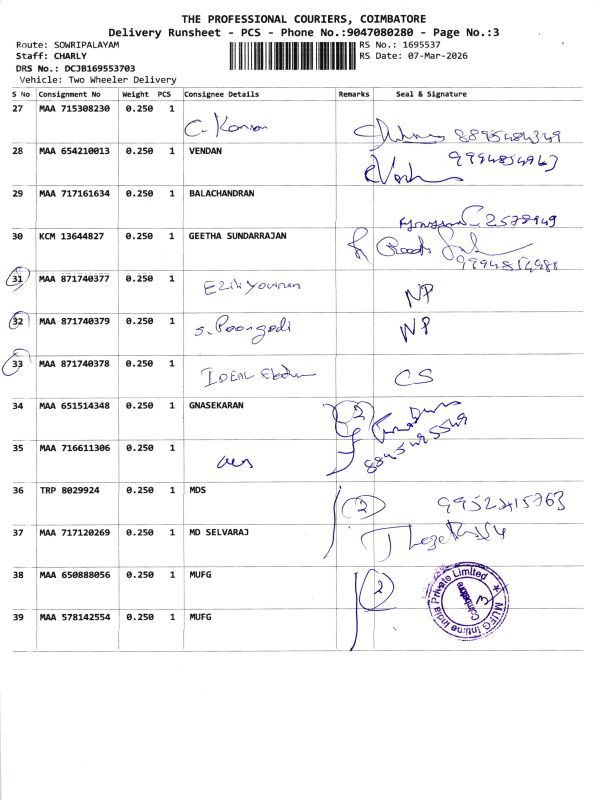 THE PROFESSIONAL COURIERS, COIMBATORE
Delivery Runsheet - PCS - Phone No.:9047080280 - Page No.:3
Route: SOWRIPALAYAM RS No.: 1695537
Staff: CHARLY RS Date: 07-Mar-2026
DRS No.: DCJB169553703
Vehicle: Two Wheeler Delivery
S No Consignment No Weight PCS Consignee Details Remarks Seal & Signature
27 MAA 715308230 0.250 1 8895484349
28 MAA 654210013 0.250 1 VENDAN 9994854963
29 MAA 717161634 0.250 1 BALACHANDRAN 2578949
30 KCM 13644827 0.250 1 GEETHA SUNDARRAJAN
31 MAA 871740377 0.250 1 NP
32 MAA 871740379 0.250 1 S. Poongodi NP
33 MAA 871740378 0.250 1 IDEAL CS
34 MAA 651514348 0.250 1 GNASEKARAN 2
35 MAA 716611306 0.250 1
36 TRP 8029924 0.250 1 MDS 2
37 MAA 717120269 0.250 1 MD SELVARAJ
38 MAA 650888056 0.250 1 MUFG 2
39 MAA 578142554 0.250 1 MUFG
MUFG Intime India Private Limited
Coimbatore